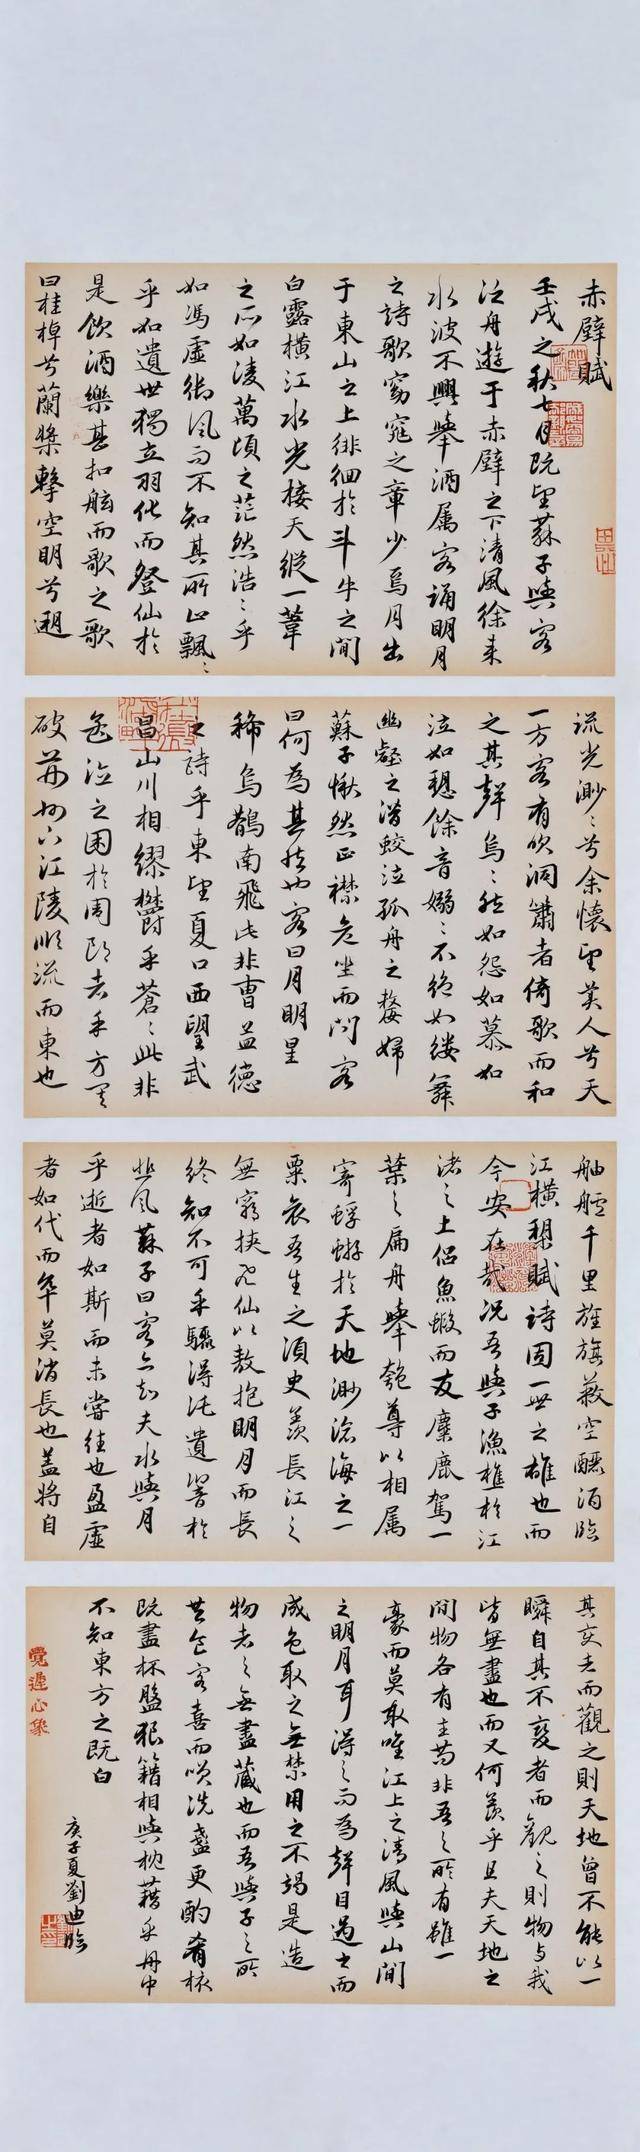 赤壁賦
壬戌之秋七月既望蘇子與客
泛舟遊于赤壁之下清風徐来
水波不興舉酒属客誦明月
之詩歌窈窕之章少焉月出
于東山之上徘徊於斗牛之間
白露横江水光接天縱一葦
之所如淩萬頃之茫然浩〻乎
如馮虚御風而不知其所止飄〻
乎如遺世獨立羽化而登仙於
是飲酒樂甚扣舷而歌之歌
曰桂棹兮蘭槳擊空明兮遡
流光渺〻兮余懷望美人兮天
一方客有吹洞簫者倚歌而和
之其聲烏〻然如怨如慕如
泣如愬餘音嫋〻不絕如縷舞
幽壑之潜蛟泣孤舟之嫠婦
蘇子愀然正襟危坐而問客
曰何為其然也客曰月明星
稀烏鵲南飛此非曹孟德
之詩乎東望夏口西望武
昌山川相繆欝乎蒼〻此非
孟德之困於周郎者乎方其
破荊州下江陵順流而東也
舳艫千里旌旗蔽空釃酒臨
江横槊賦詩固一世之雄也而
今安在哉况吾與子漁樵於江
渚之上侣魚蝦而友麋鹿駕一
葉之扁舟舉匏尊以相属
寄蜉蝣於天地渺滄海之一
粟哀吾生之須臾羨長江之
無窮挟飛仙以遨抱明月而長
終知不可乎驟得託遺響於
悲風蘇子曰客亦知夫水與月
乎逝者如斯而未嘗往也盈虚
者如代而卒莫消長也盖將自
其變者而觀之則天地曾不能以一
瞬自其不變者而觀之則物与我
皆無盡也而又何羨乎且夫天地之
間物各有主苟非吾之所有雖一
豪而莫取唯江上之清風與山間
之明月耳得之而為聲目遇之而
成色取之無禁用之不竭是造
物者之無盡藏也而吾與子之所
共食客喜而咲洗盞更酌肴核
既盡杯盤狼籍相與枕藉乎舟中
不知東方之既白
庚子夏劉迪臨
覺遲心象